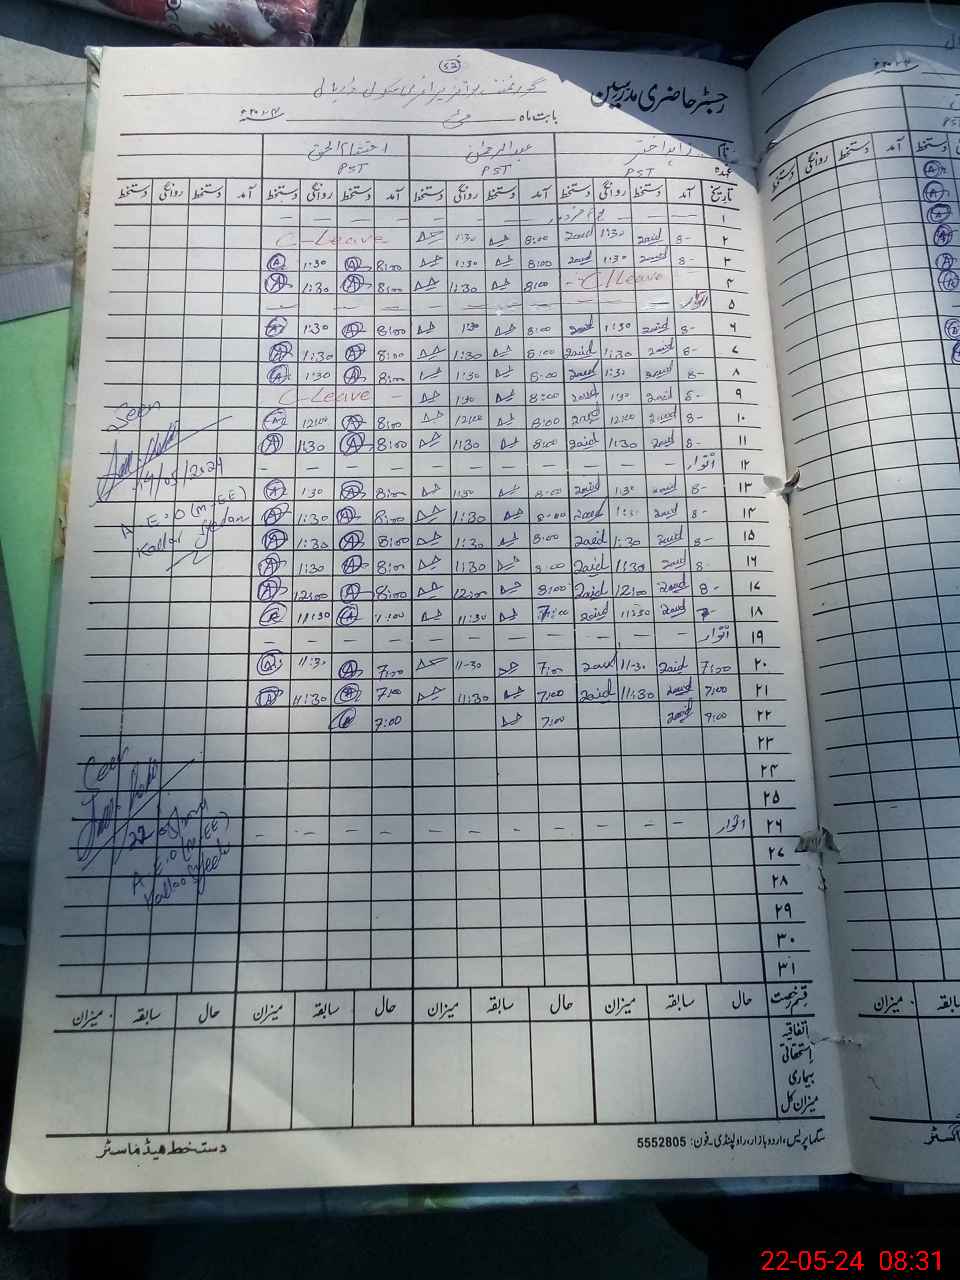 ۵۲
رجسٹر حاضری مدرسین
گورنمنٹ سکول
بابت ماہ مئی
زاہد اختر عبدالرحمٰن احتشام الحق
عہدہ PST PST PST
تاریخ آمد دستخط روانگی دستخط آمد دستخط روانگی دستخط آمد دستخط روانگی دستخط آمد دستخط روانگی دستخط
۱ — — — — — — — — —
۲ 8- Zaid 1:30 Zaid 8:00 1:30 C-Leave
۳ 8- Zaid 1:30 Zaid 8:00 1:30 8:00 A 1:30 A
۴ C/Leave 8:00 1:30 8:00 A 1:30 A
۵ اتوار — — — — — — — —
۶ 8- Zaid 1:30 Zaid 8:00 1:30 8:00 A 1:30 A
۷ 8- Zaid 1:30 Zaid 8:00 1:30 8:00 A 1:30 A
۸ 8- Zaid 1:30 Zaid 8:00 1:30 8:00 A 1:30 A
۹ 8- Zaid 1:30 Zaid 8:00 1:30 C-Leave
۱۰ 8- Zaid 12:00 Zaid 8:00 12:00 8:00 A 12:00 A
۱۱ 8- Zaid 1:30 Zaid 8:00 1:30 8:00 A 1:30 A
۱۲ اتوار — — — — — — — —
۱۳ 8- Zaid 1:30 Zaid 8:00 1:30 8:00 A 1:30 A
۱۴ 8- Zaid 1:30 Zaid 8:00 1:30 8:00 A 1:30 A
۱۵ 8- Zaid 1:30 Zaid 8:00 1:30 8:00 A 1:30 A
۱۶ 8- Zaid 1:30 Zaid 8:00 1:30 8:00 A 1:30 A
۱۷ 8- Zaid 12:00 Zaid 8:00 12:00 8:00 A 12:00 A
۱۸ 7- Zaid 11:30 Zaid 7:00 11:30 7:00 A 11:30 A
۱۹ اتوار — — — — — — — —
۲۰ 7:00 Zaid 11:30 Zaid 7:00 11-30 7:00 A 11:30 A
۲۱ 7:00 Zaid 11:30 Zaid 7:00 11:30 7:00 A 11:30 A
۲۲ 7:00 Zaid 7:00 7:00 A
۲۳
۲۴
۲۵
۲۶ اتوار — — — — — — — —
۲۷
۲۸
۲۹
۳۰
۳۱
Seen
14/05/2024
A.E.O (M-EE)
Kallar Syedan
Seen
22/05/2024
A.E.O (M-EE)
Kallar Syedan
قسم رخصت حال سابقہ میزان حال سابقہ میزان حال سابقہ میزان حال سابقہ میزان
اتفاقیہ
استحقاقی
بیماری
میزان کل
دستخط ہیڈ ماسٹر
سگما پریس، اردو بازار، راولپنڈی۔ فون: 5552805
22-05-24 08:31